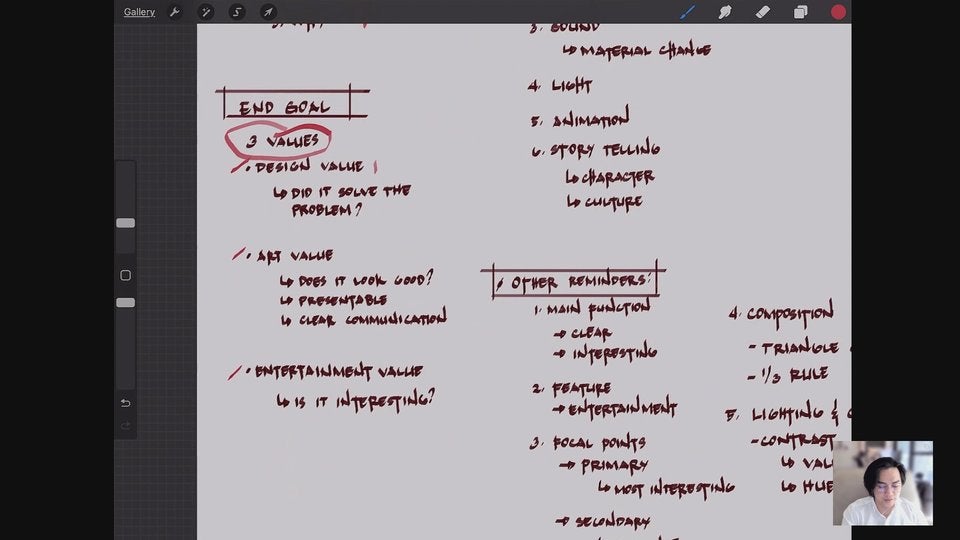 Gallery
END GOAL
3 VALUES
• DESIGN VALUE
↳ DID IT SOLVE THE
PROBLEM?
• ART VALUE
↳ DOES IT LOOK GOOD?
↳ PRESENTABLE
↳ CLEAR COMMUNICATION
• ENTERTAINMENT VALUE
↳ IS IT INTERESTING?
3. SOUND
↳ MATERIAL CHANGE
4. LIGHT
5. ANIMATION
6. STORY TELLING
↳ CHARACTER
↳ CULTURE
OTHER REMINDERS:
1. MAIN FUNCTION
→ CLEAR
→ INTERESTING
2. FEATURE
→ ENTERTAINMENT
3. FOCAL POINTS
→ PRIMARY
↳ MOST INTERESTING
→ SECONDARY
4. COMPOSITION
- TRIANGLE
- 1/3 RULE
5. LIGHTING &
- CONTRAST
↳ VAL
↳ HUE